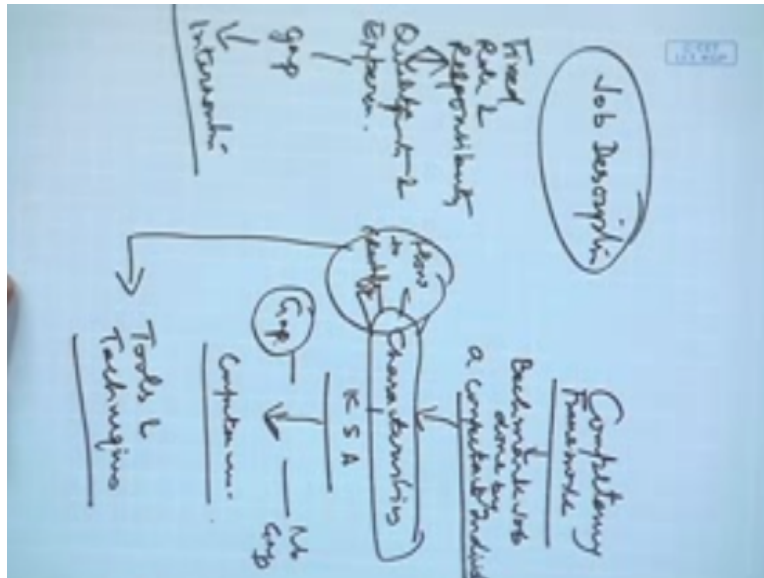 Job Description
Fixed
Role &
Responsibility
Qualificati- &
Experi.
gap
Interventi-
Competency
Framework
Benchmark Job
done by
a competent Indivi
Characteristics
How
to
Identify
K S A
Gap
No
Gap
Tools &
Techniques